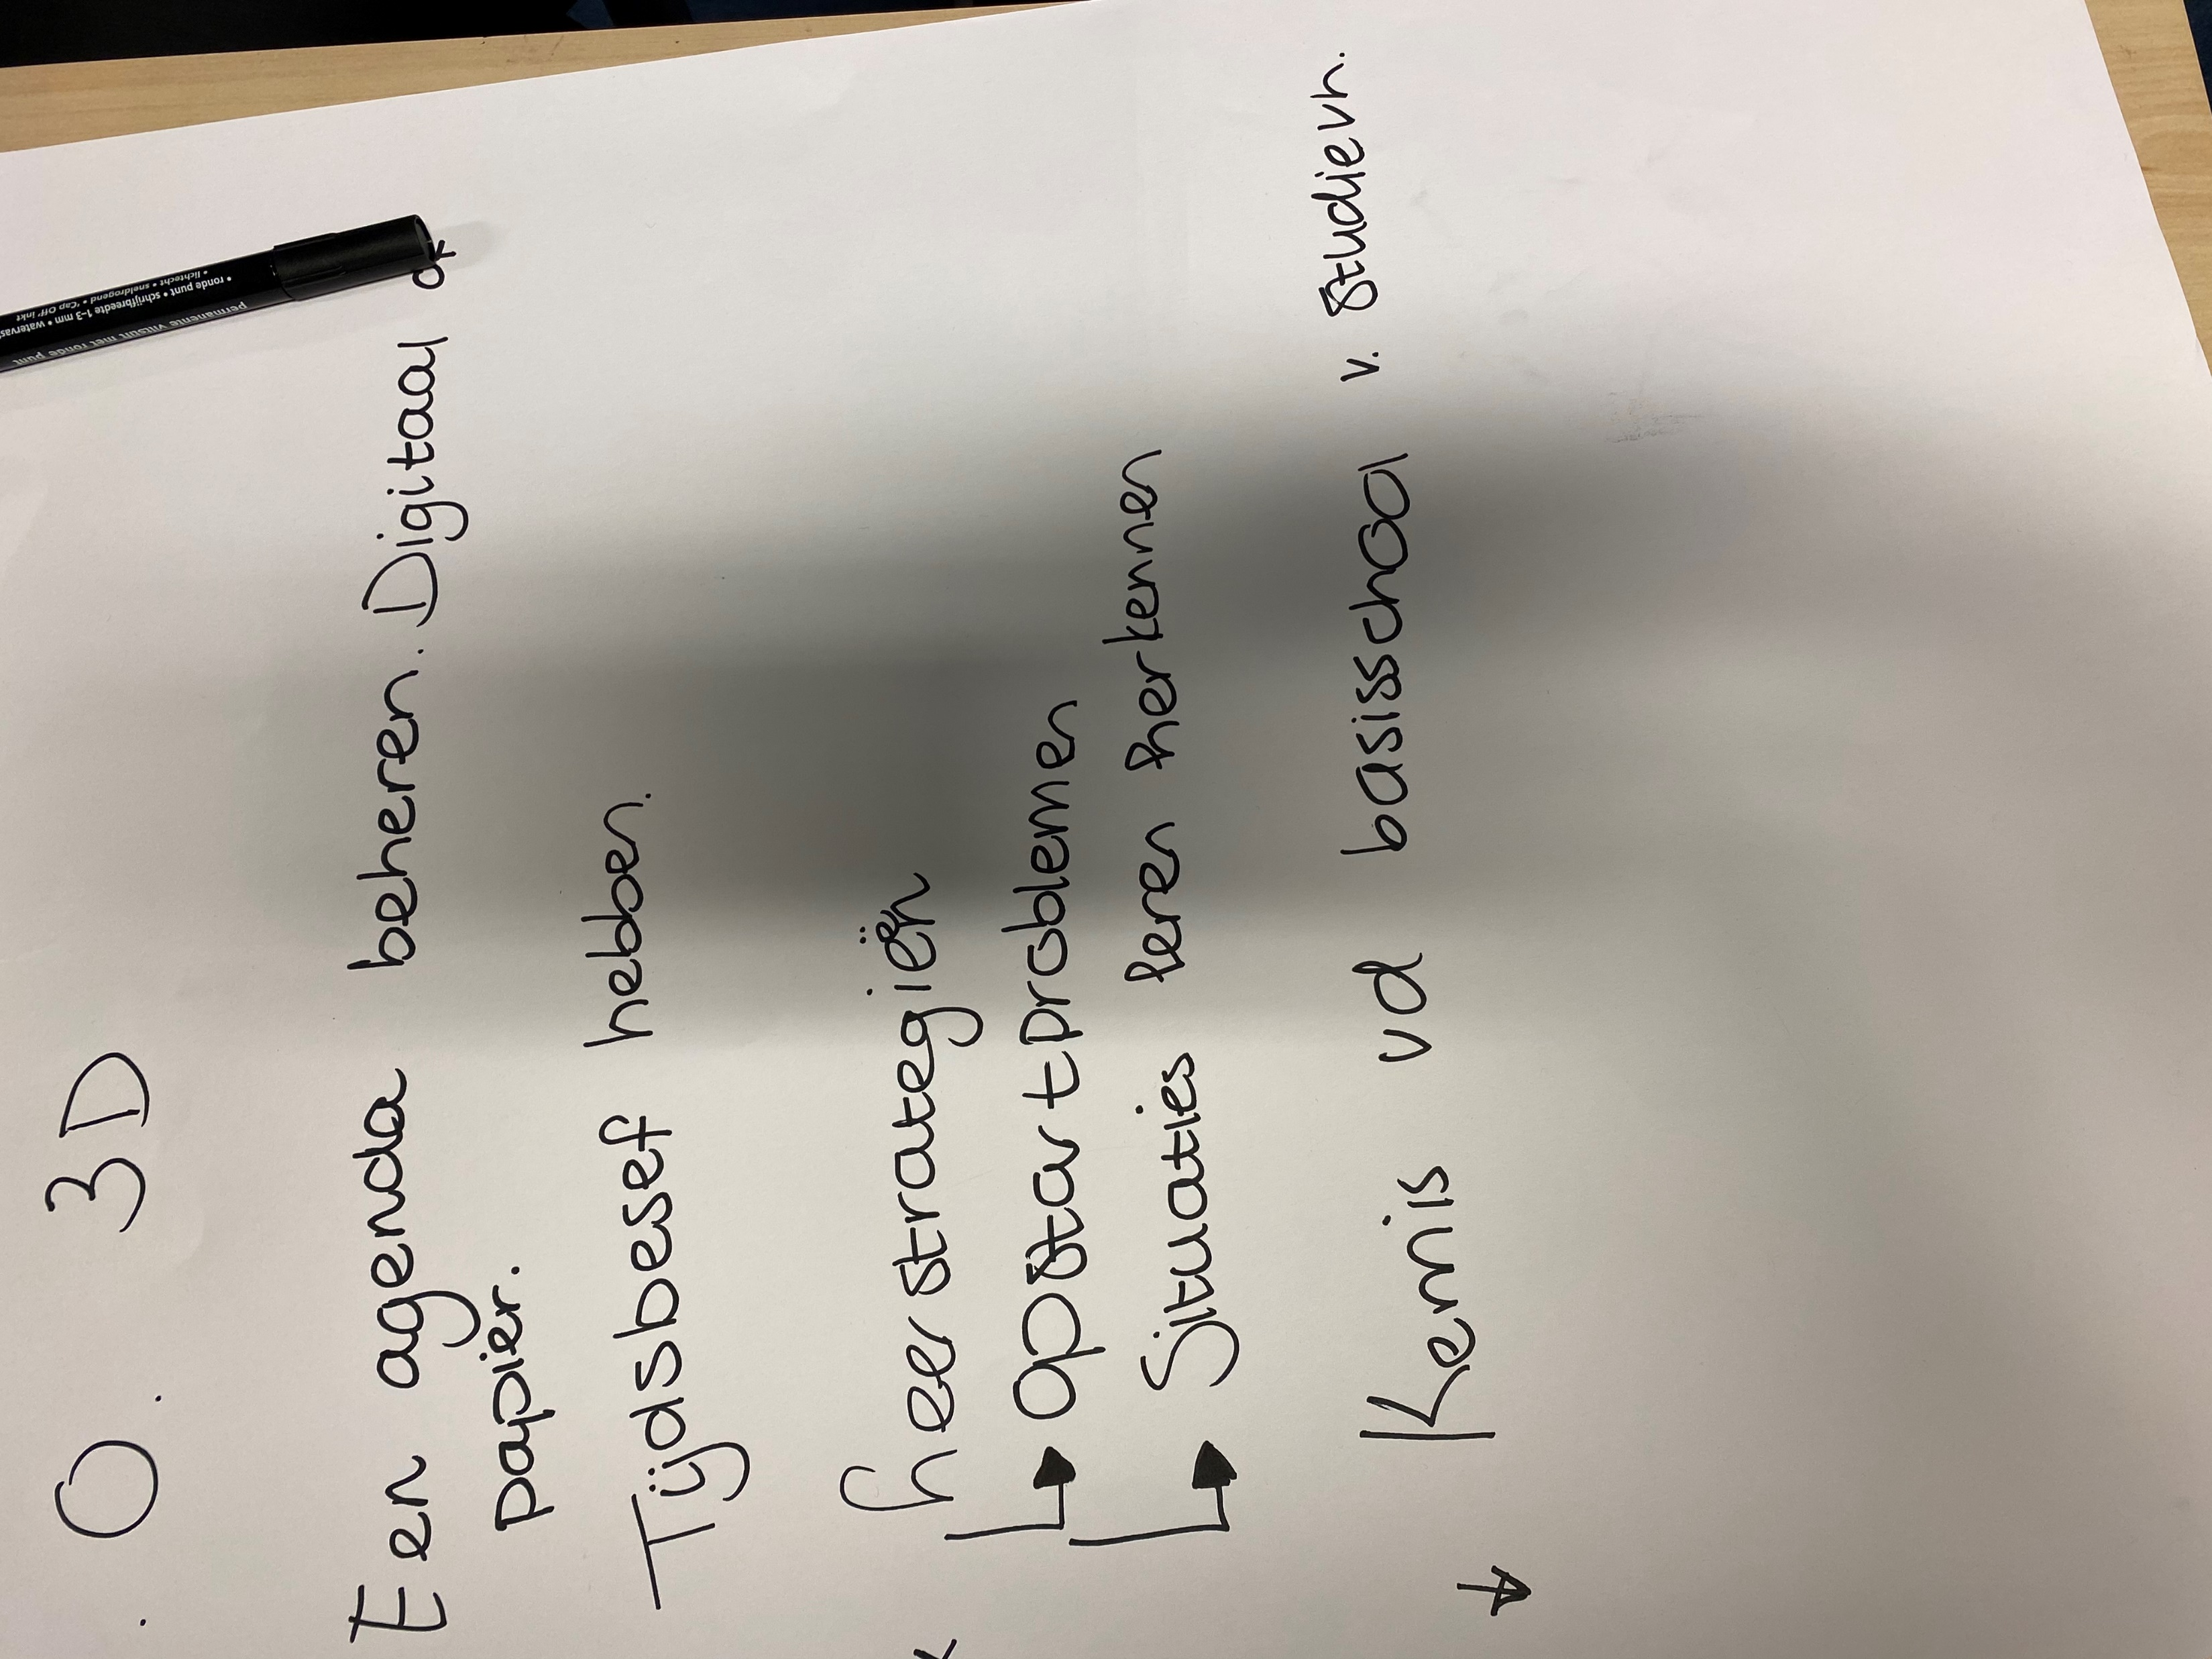 . O. 3D
Een agenda beheren. Digitaal of
papier.
Tijdsbesef hebben.
Leerstrategieën
Opstartproblemen
Situaties leren herkennen
Kennis vd basisschool v. studievh.
permanente viltstift met ronde punt
• ronde punt • schrijfbreedte 1-3 mm •
• lichtecht • sneldrogend • 'Cap Off' inkt